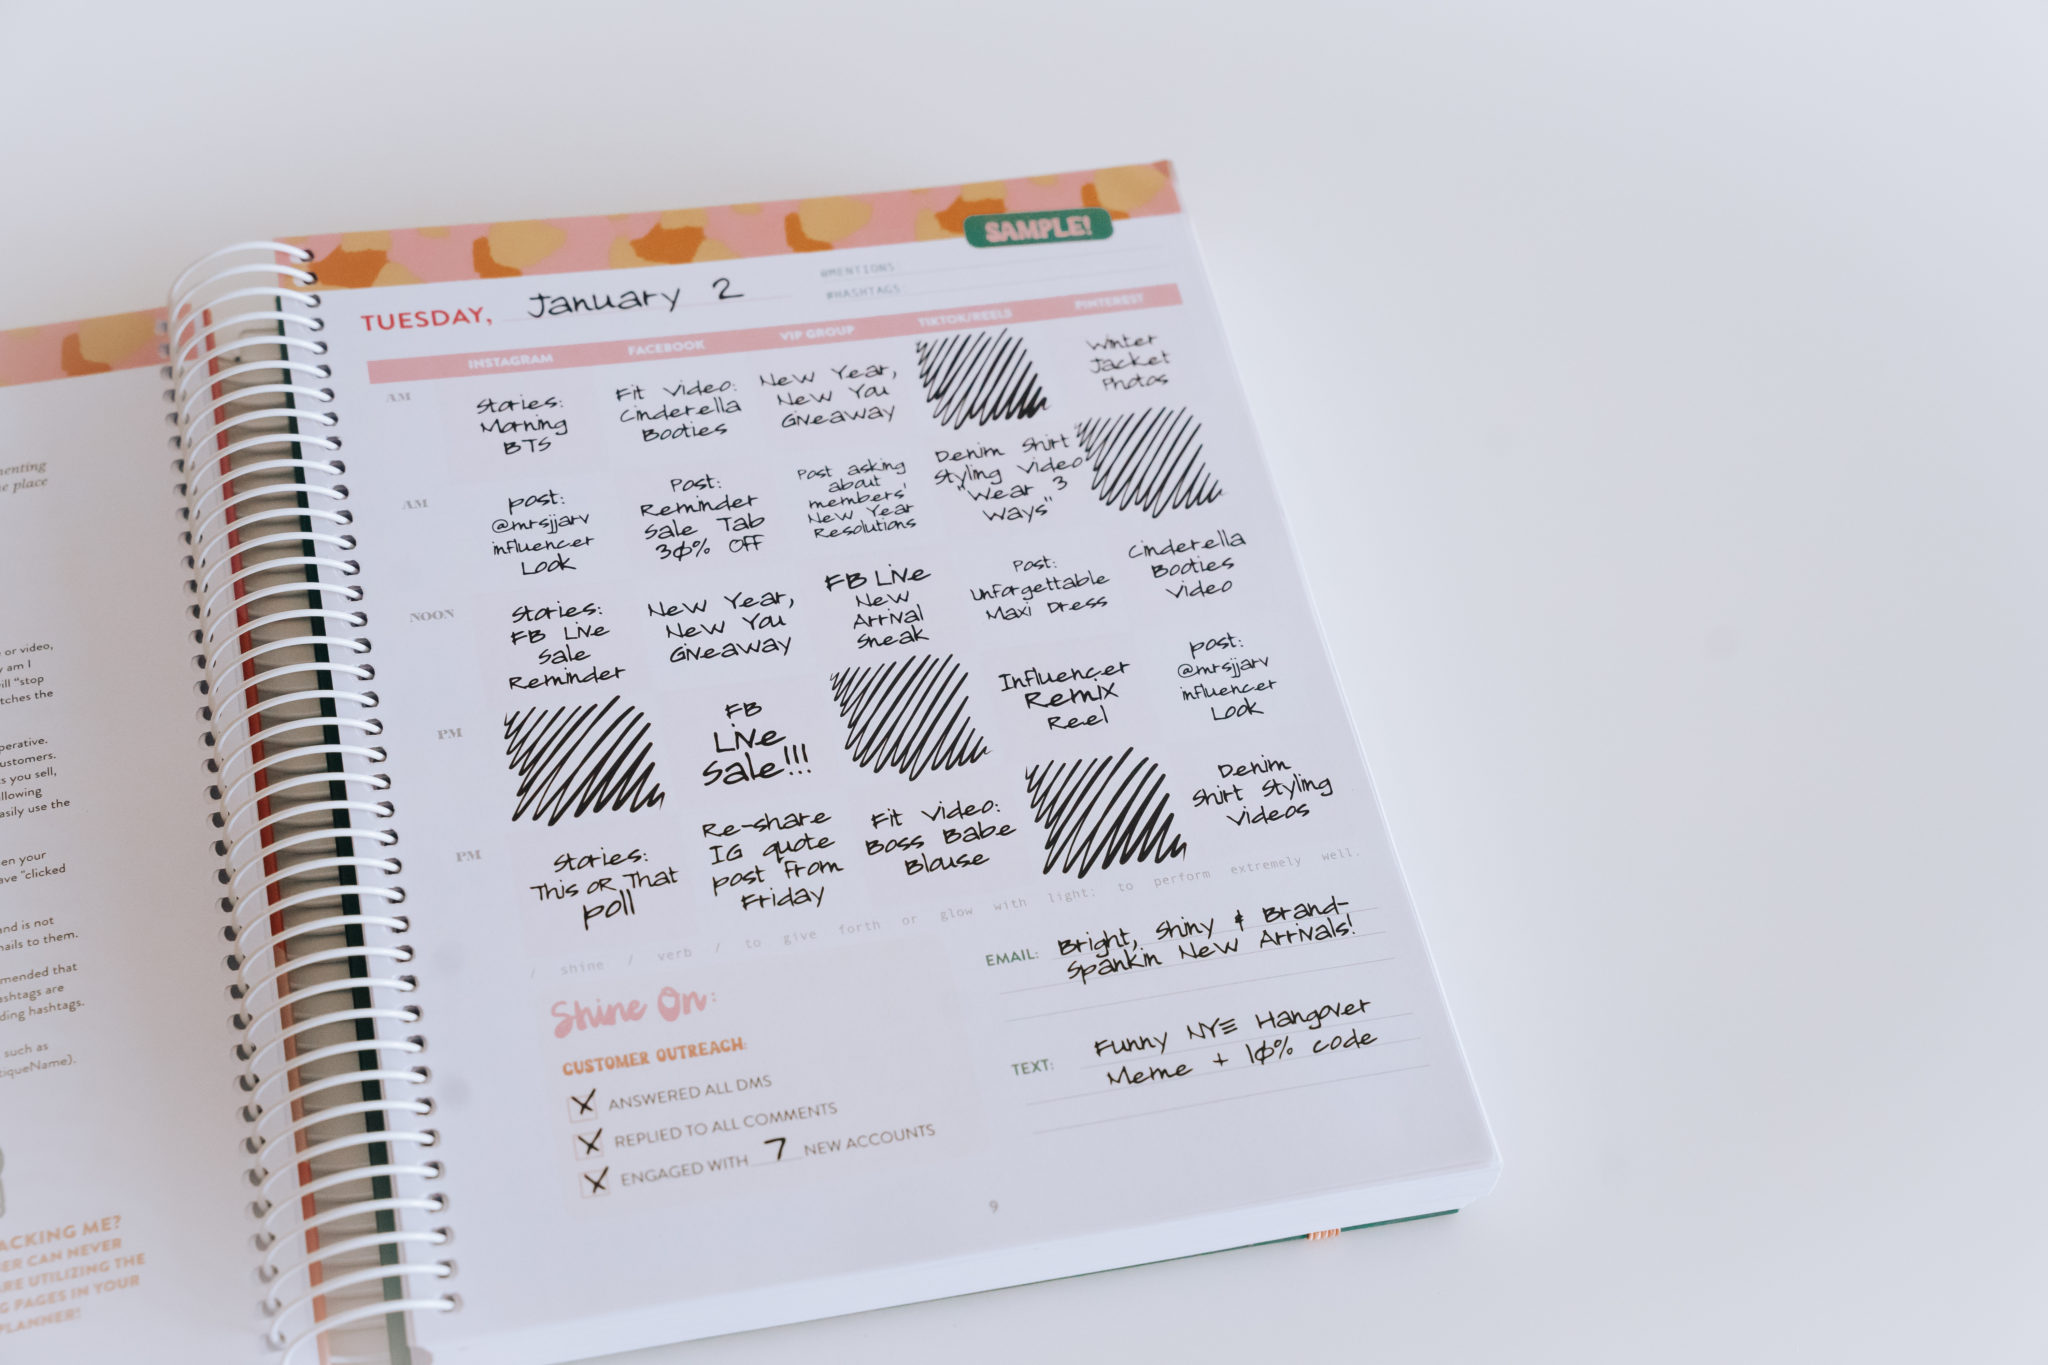 SAMPLE!
TUESDAY, January 2
@MENTIONS:
#HASHTAGS:
INSTAGRAM FACEBOOK VIP GROUP TIKTOK/REELS PINTEREST
AM
Stories:
Morning
BTS
Fit Video:
Cinderella
Booties
New Year,
New You
Giveaway
Winter
Jacket
Photos
AM
Post:
@mrsjjarv
influencer
Look
Post:
Reminder
Sale Tab
30% Off
Post asking
about
members'
New Year
Resolutions
Denim Shirt
Styling Video
"Wear 3
Ways"
NOON
Stories:
FB Live
Sale
Reminder
New Year,
New You
Giveaway
FB Live
New
Arrival
Sneak
Post:
Unforgettable
Maxi Dress
Cinderella
Booties
Video
PM
FB
Live
Sale!!!
Influencer
Remix
Reel
Post:
@mrsjjarv
influencer
Look
PM
Stories:
This OR That
poll
Re-share
IG quote
post from
Friday
Fit Video:
Boss Babe
Blouse
Denim
Shirt Styling
Videos
/ shine / verb / to give forth or glow with light; to perform extremely well.
Shine On:
CUSTOMER OUTREACH:
X ANSWERED ALL DMS
X REPLIED TO ALL COMMENTS
X ENGAGED WITH 7 NEW ACCOUNTS
EMAIL: Bright, Shiny & Brand-
Spankin New Arrivals!
TEXT: Funny NYE Hangover
Meme + 10% code
9
menting
e place
or video,
y am I
ill "stop
tches the
perative.
ustomers.
s you sell,
llowing
easily use the
en your
ave "clicked
and is not
nails to them.
mended that
ashtags are
ding hashtags.
such as
tiqueName).
ACKING ME?
ER CAN NEVER
RE UTILIZING THE
G PAGES IN YOUR
PLANNER!